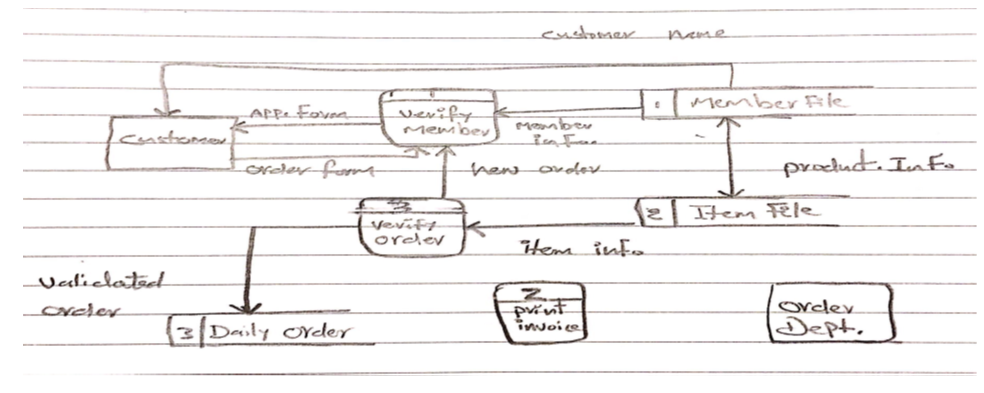 customer name
1
Verify
member
1
Member File
App. Form
Customer
Member
info.
order form
new order
product. Info
3
Verify
order
2
Item File
item info.
Validated
order
2
print
invoice
order
Dept.
3
Daily order